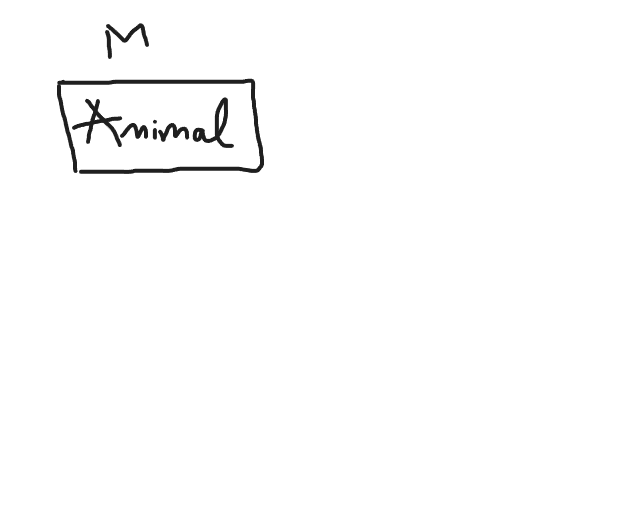 M
Animal